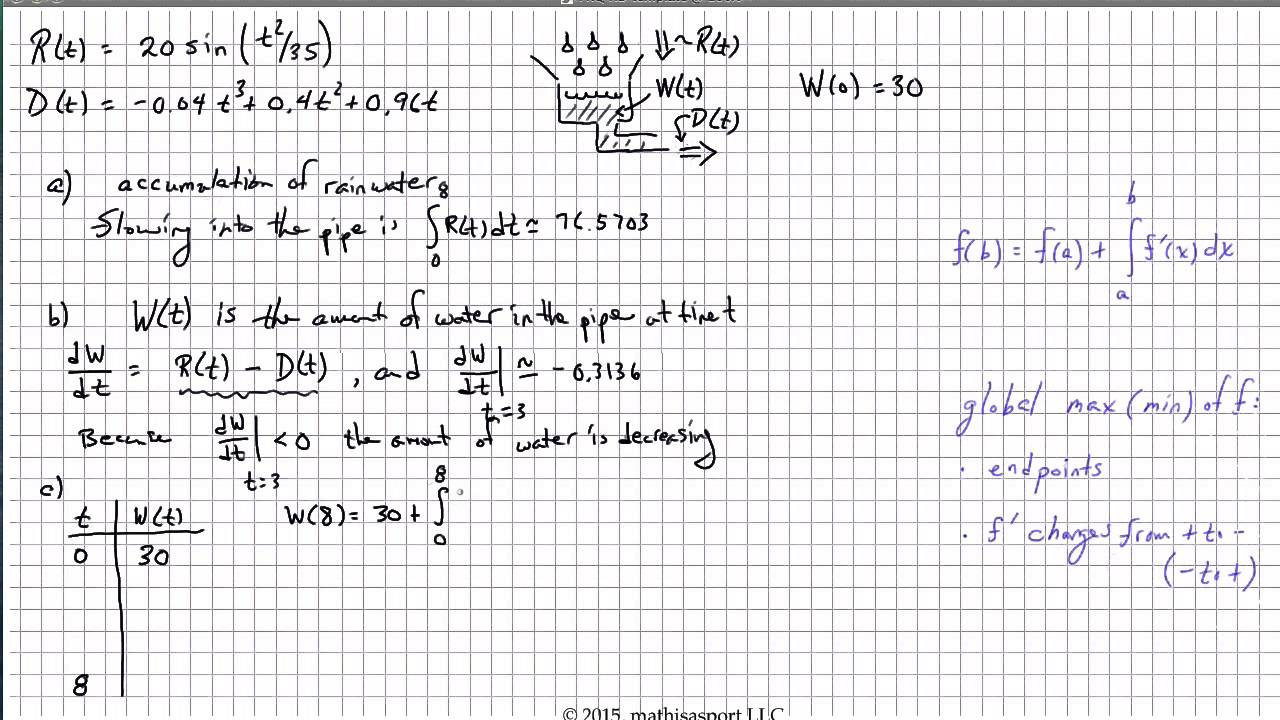 R(t) = 20 sin(t²/35)
D(t) = -0.04 t³ + 0,4t² + 0,96t
~R(t)
W(t)
D(t)
W(0) = 30
a) accumulation of rainwater
flowing into the pipe is ∫₀⁸ R(t) dt ≃ 76.5703
f(b) = f(a) + ∫ₐᵇ f'(x) dx
b) W(t) is the amount of water in the pipe at time t
dW/dt = R(t) - D(t), and dW/dt |t=3 ≃ -0,3136
Because dW/dt |t=3 < 0 the amount of water is decreasing
global max (min) of f:
· endpoints
· f' changes from + to -
(- to +)
c)
t | W(t)
0 | 30
8
W(8) = 30 + ∫₀⁸
© 2015, mathisasport LLC